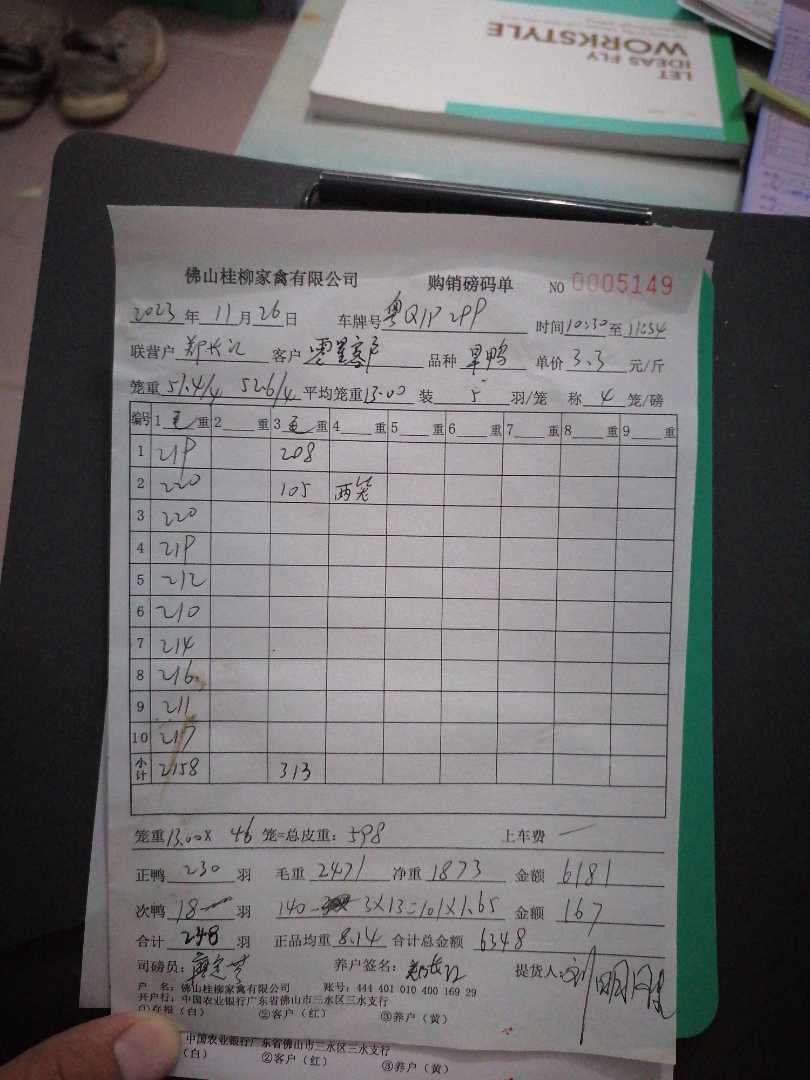 LET
IDEAS FLY
WORKSTYLE
佛山桂柳家禽有限公司 购销磅码单 NO 0005149
2023年11月26日 车牌号粤Q1P299 时间10:30至11:34
联营户 郑长江 客户 零星客户 品种 旱鸭 单价 3.3 元/斤
笼重 51.4/4 52.6/4 平均笼重13.00 装 5 羽/笼 称 4 笼/磅
编号 1毛重 2 重 3毛重 4 重 5 重 6 重 7 重 8 重 9 重
1 219 208
2 220 105 两笼
3 220
4 219
5 212
6 210
7 214
8 216
9 211
10 217
小计 2158 313
笼重13.00X 46 笼=总皮重: 598 上车费 一
正鸭 230 羽 毛重 2471 净重 1873 金额 6181
次鸭 18 羽 140- 3X13=101X1.65 金额 167
合计 248 羽 正品均重 8.14 合计总金额 6348
司磅员: 养户签名: 郑长江 提货人:
户 名: 佛山桂柳家禽有限公司 账号: 444 401 010 400 169 29
开户行: 中国农业银行广东省佛山市三水区三水支行
①存报(白) ②客户(红) ③养户(黄)
中国农业银行广东省佛山市三水区三水支行
(白) ②客户(红) ③养户(黄)